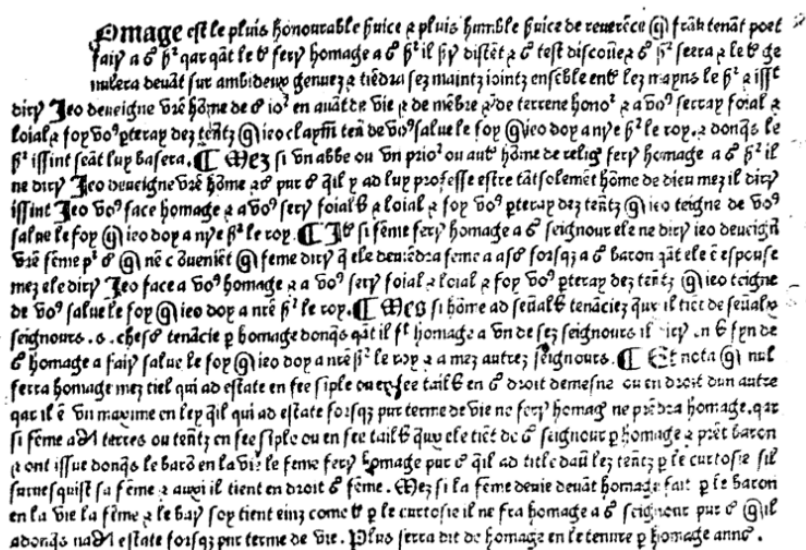 Omage est le pluis honourable ẜuice & pluis humble ẜuice de reuerēce q̄ frāk tenāt poet
faiẜ a sō sʳ qar qāt le tē ferẜ homage a sō sʳ il ẜẜ distēt & sō test discouē & sō sʳ seera & le tē ge
nulera deuāt sur ambideux genuez & tiēdra sez maintz iointz ensēble entē lez mayns le sʳ & isst
dirẜ Jeo deueigne vrē hōme de cē ioʳ en auāt de vie & de mēbre & de terrene honoʳ & a voꝰ serray foial &
loial & foy voꝰ ꝑteray dez tentz q̄ ieo claym teñ de voꝰ salue le foy q̄ ieo doy a nrē sʳ le roy. & donqs le
sʳ issint seāt luy basera. ¶ Mez si vn abbe ou vn prioʳ ou autē hōme de relig ferẜ homage a sō sʳ il
ne dirẜ Jeo deueigne vrē hōme &c pur cē q̄il ẜ ad luy professe estre tātsolemēt hōme de dieu mez il dirẜ
issint Jeo voꝰ face homage & a voꝰ serẜ foial & loial & foy voꝰ ꝑteray dez tentz q̄ ieo teigne de voꝰ
salue le foy q̄ ieo doy a nrē sʳ le roy. ¶ Itē si fēme ferẜ homage a sō seignour ele ne dirẜ ieo deueign
vrē fēme pʳ cē q̄ nē cōueniēt q̄ feme dirẜ q̄ ele deuiēdra feme a ascē forsqz a sō baron qāt ele ē espouse
mez ele dirẜ Jeo face a voꝰ homage & a voꝰ serẜ foial & loial & foy voꝰ ꝑteray dez tentz q̄ ieo teigne
de voꝰ salue le foy q̄ ieo doy a nrē sʳ le roy. ¶ Mes si hōme ad seūalē tenāciez quex il tiēt de seūalx
seignours .s. chescē tenācie ꝑ homage donqs qāt il fʳ homage a vn de sez seignours il dirẜ en lē fyn de
sō homage a faiẜ salue le foy q̄ ieo doy a nrē sʳ le roy & a mez autrez seignours. ¶ Et nota q̄ nul
ferra homage mez tiel qui ad estate en fee siple ou en fee tailē en sō droit demesne ou en droit dun autre
qar il ē vn maxime en ley q̄il qui ad estate forsqz pur terme de vie ne ferẜ homag ne prēdra homage. qar
si fēme ad terres ou tentz en fee siple ou en fee tailē qux ele tiēt de sō seignour ꝑ homage & prēt baron
& ont issue donqs le barō en la vie le feme ferẜ homage pur cē q̄il ad title dauē lez tentz ꝑ le curtosie sil
suruesquist sa fēme & auxi il tient en droit sō fēme. Mez si la feme deuie deuāt homage fait ꝑ le baron
en la vie la fēme & le baẜ soy tient einz come tē ꝑ le curtosie il ne fra homage a sō seignour pur cē q̄il
adonqs nad estate forsqz pur terme de vie. Plus serra dit de homage en le tenure ꝑ homage annē.